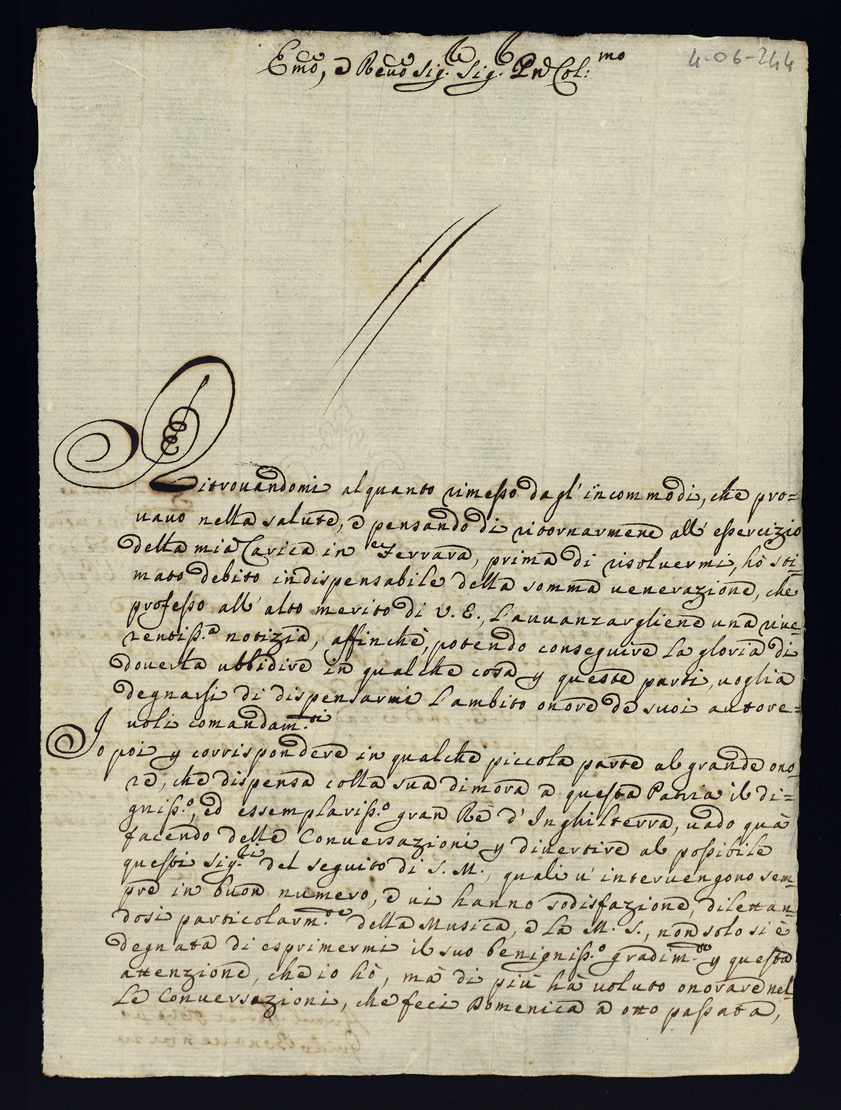 Emo, e Reuo Sig. Sig. Pne Col:mo
4-06-244
Ritrouandomi alquanto rimesso dagl' incommodi, che pro=
uauo nella salute, e pensando di ritornarmene all' essercizio
della mia Carica in Ferrara, prima di risoluermi, hò sti=
mato debito indispensabile della somma uenerazione, che
professo all' alto merito di V. E., l'auuanzargliene una riue=
rentiss.a notizia, affinchè, potendo conseguire la gloria di
douerla ubbidire in qualche cosa p queste parti, uoglia
degnarsi di dispensarmi l'ambito onore de suoi autore=
uoli comandam.ti
Io poi p corrispondere in qualche piccola parte al grande ono=
re, che dispensa colla sua dimora a questa Patria il di=
gniss.o, ed essemplariss.o gran Rè d' Inghilterra, uado quà
facendo delle Conuersazioni p diuertire al possibile
questi Sig.ri del seguito di S. M., quali u' interuengono sem=
pre in buon numero, e ui hanno sodisfazione, dilettan=
dosi particolarm.te della Musica, e la M. S., non solo si è
degnata di esprimermi il suo benigniss.o gradim.to p questa
attenzione, che io hò, mà di più hà uoluto onorare nel=
le Conuersazioni, che feci Domenica a otto passata,